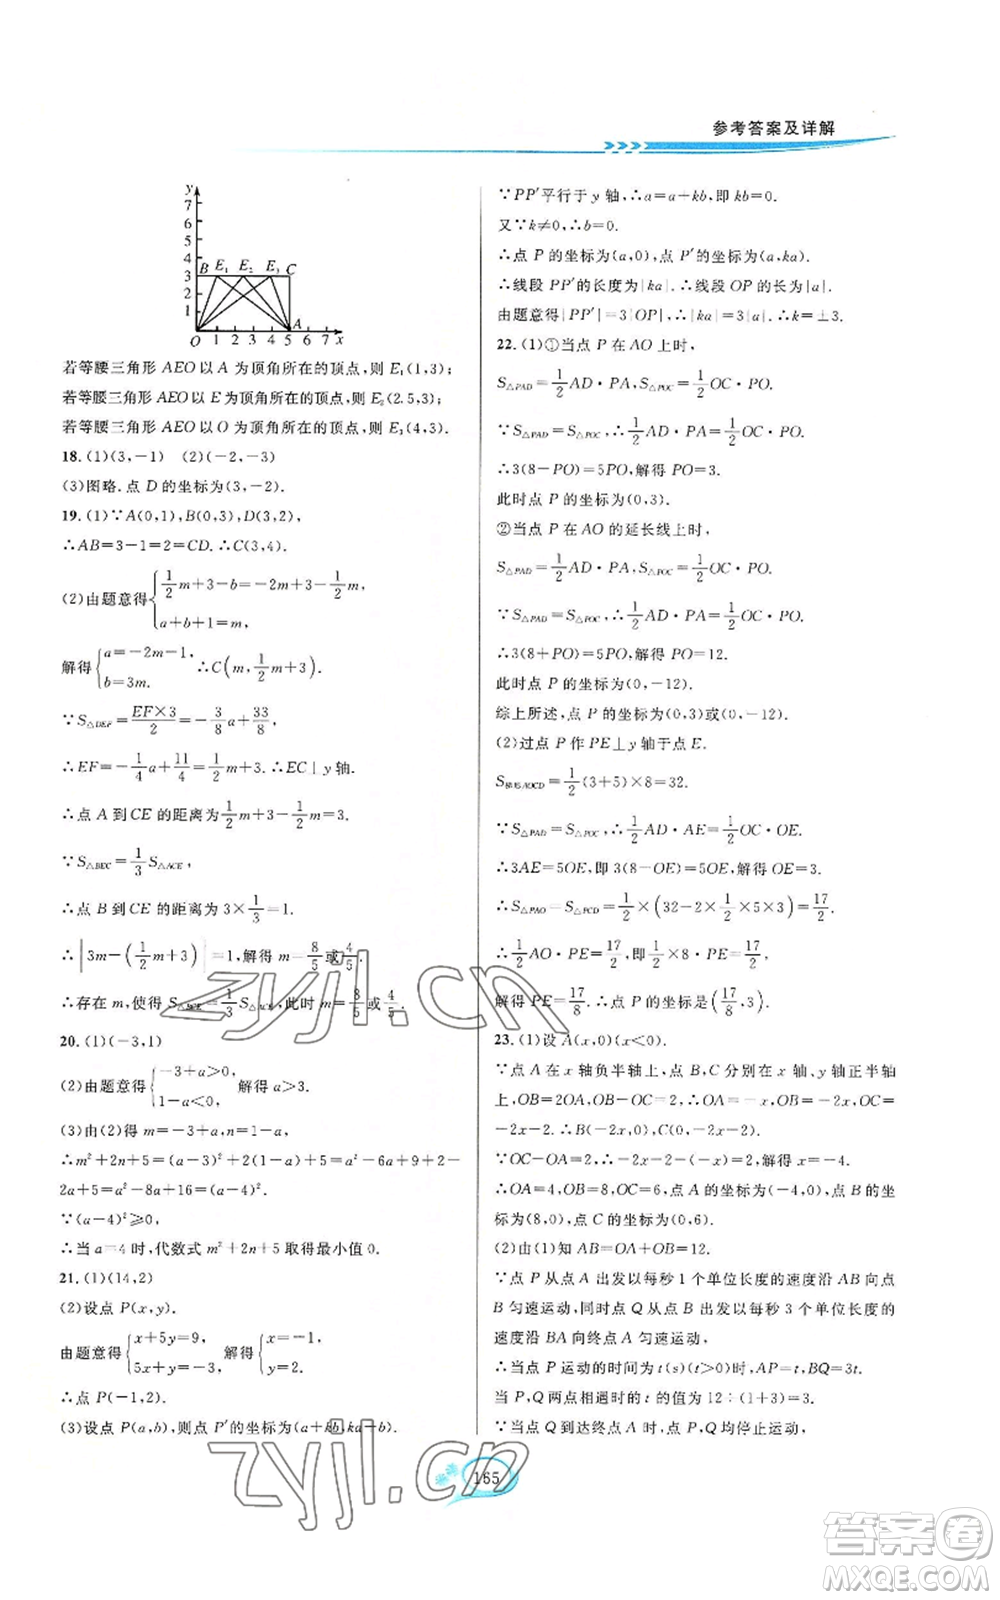 参考答案及详解
y
7
6
5
4
3 B E₁ E₂ E₃ C
2
1
A
O 1 2 3 4 5 6 7 x
若等腰三角形 AEO 以 A 为顶角所在的顶点,则 E₁(1,3);
若等腰三角形 AEO 以 E 为顶角所在的顶点,则 E₂(2.5,3);
若等腰三角形 AEO 以 O 为顶角所在的顶点,则 E₃(4,3).
18. (1)(3,-1) (2)(-2,-3)
(3)图略.点 D 的坐标为(3,-2).
19. (1)∵A(0,1),B(0,3),D(3,2),
∴AB=3-1=2=CD. ∴C(3,4).
(2)由题意得{1/2m+3-b=-2m+3, a+b+1=m,
解得{a=-2m-1, b=3m. ∴C(m,1/2m+3).
∵S△DEF=EF×3/2=-3/8a+33/8,
∴EF=-1/4a+11/4=1/2m+3. ∴EC⊥y 轴.
∴点 A 到 CE 的距离为1/2m+3-1/2m=3.
∵S△BEC=1/3S△ACE,
∴点 B 到 CE 的距离为 3×1/3=1.
∴|3m-(1/2m+3)|=1,解得 m=8/5或4/5.
∴存在 m,使得 S△BCE=1/3S△ACE,此时 m=8/5或4/5.
20. (1)(-3,1)
(2)由题意得{-3+a>0, 1-a<0, 解得 a>3.
(3)由(2)得 m=-3+a,n=1-a,
∴m²+2n+5=(a-3)²+2(1-a)+5=a²-6a+9+2-
2a+5=a²-8a+16=(a-4)².
∵(a-4)²≥0,
∴当 a=4 时,代数式 m²+2n+5 取得最小值 0.
21. (1)(14,2)
(2)设点 P(x,y).
由题意得{x+5y=9, 5x+y=-3, 解得{x=-1, y=2.
∴点 P(-1,2).
(3)设点 P(a,b),则点 P′的坐标为(a+kb,ka+b).
∵PP′平行于 y 轴,∴a=a+kb,即 kb=0.
又∵k≠0,∴b=0.
∴点 P 的坐标为(a,0),点 P′的坐标为(a,ka).
∴线段 PP′的长度为|ka|. ∴线段 OP 的长为|a|.
由题意得|PP′|=3|OP|,∴|ka|=3|a|. ∴k=±3.
22. (1)①当点 P 在 AO 上时,
S△PAD=1/2AD·PA,S△POC=1/2OC·PO.
∵S△PAD=S△POC,∴1/2AD·PA=1/2OC·PO.
∴3(8-PO)=5PO,解得 PO=3.
此时点 P 的坐标为(0,3).
②当点 P 在 AO 的延长线上时,
S△PAD=1/2AD·PA,S△POC=1/2OC·PO.
∵S△PAD=S△POC,∴1/2AD·PA=1/2OC·PO.
∴3(8+PO)=5PO,解得 PO=12.
此时点 P 的坐标为(0,-12).
综上所述,点 P 的坐标为(0,3)或(0,-12).
(2)过点 P 作 PE⊥y 轴于点 E.
S梯形AOCD=1/2(3+5)×8=32.
∵S△PAD=S△POC,∴1/2AD·AE=1/2OC·OE.
∴3AE=5OE,即 3(8-OE)=5OE,解得 OE=3.
∵S△PAO=S△PCD=1/2×(32-1/2×3×5-1/2×5×3)=17/2.
∴1/2AO·PE=17/2,即1/2×8·PE=17/2,
解得 PE=17/8. ∴点 P 的坐标是(17/8,3).
23. (1)设 A(x,0)(x<0).
∵点 A 在 x 轴负半轴上,点 B,C 分别在 x 轴、y 轴正半轴
上,OB=2OA,OB-OC=2,∴OA=-x,OB=-2x,OC=
-2x-2. ∴B(-2x,0),C(0,-2x-2).
∵OC-OA=2,∴-2x-2-(-x)=2,解得 x=-4.
∴OA=4,OB=8,OC=6. ∴点 A 的坐标为(-4,0),点 B 的坐
标为(8,0),点 C 的坐标为(0,6).
(2)由(1)知 AB=OA+OB=12.
∵点 P 从点 A 出发以每秒 1 个单位长度的速度沿 AB 向点
B 匀速运动,同时点 Q 从点 B 出发以每秒 3 个单位长度的
速度沿 BA 向终点 A 匀速运动,
∴当点 P 运动的时间为 t(s)(t>0)时,AP=t,BQ=3t.
∴P,Q 两点相遇时的 t 的值为 12÷(1+3)=3.
∵当点 Q 到达终点 A 时,点 P,Q 均停止运动,
165
zyjl.cn
zyjl.cn
答案卷
MXQE.COM